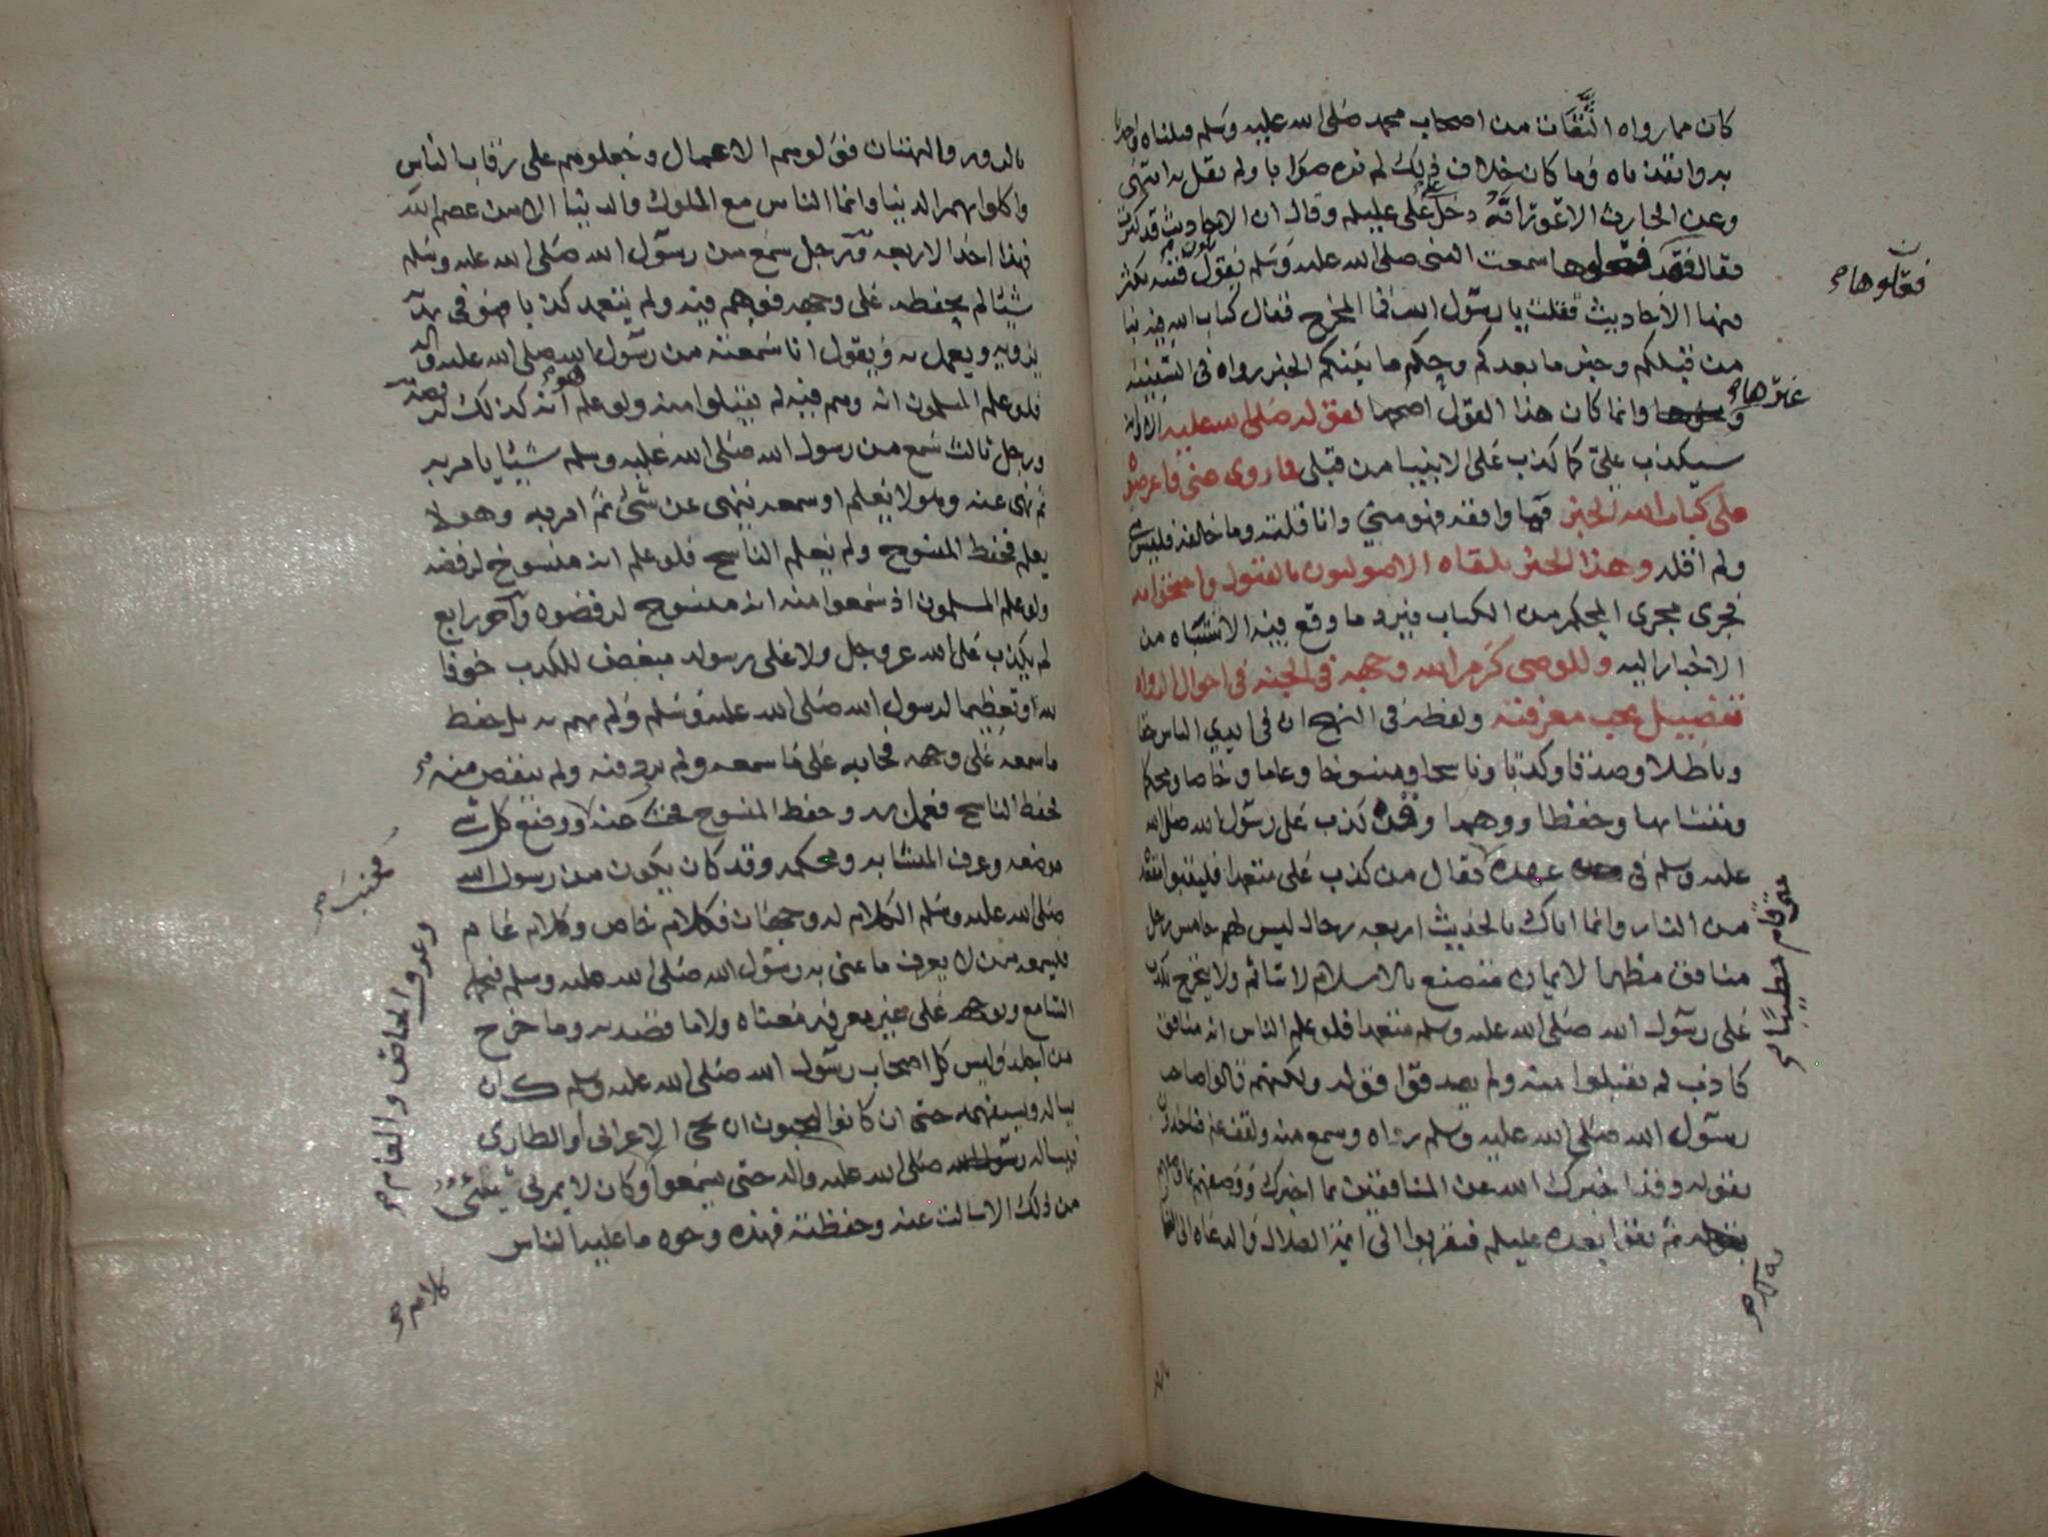 كان مما رواه الثقات من اصحاب محمد صلى الله عليه وسلم قبلناه واخذنا
به وانفذناه وما كان خلاف ذلك لم نره صوابا ولم نقل به انتهى
وعن الحارث الاعور انه دخل على علي عليلم وقال ان الاحاديث قد كثرت
فقال فقد فعلوها سمعت النبي صلى الله عليه وسلم يقول تكون فتنه تكثر
فيها الاحاديث فقلت يا رسول الله فما المخرج فقال كتاب الله فيه نبا
من قبلكم وخبر ما بعدكم وحكم ما بينكم الخبر رواه في السفينه
وانما كان هذا القول اصحها لقوله صلى الله عليه الا وانه
سيكذب علي كما كذب على الانبيا من قبلي فما روي عني فاعرضوه
على كتاب الله الخبر فما وافقه فهو مني وانا قلته وما خالفه فليس مني
ولم اقله وهذا الخبر تلقاه الاصوليون بالقبول واحتجوا به
فجرى مجرى المحكم من الكتاب فيرد ما وقع فيه الاشتباه من
الاخبار اليه وللوصي كرم الله وجهه في الجنه في احوال الرواه
تفصيل يجب معرفته ولفظه في النهج ان في ايدي الناس حقا
وباطلا وصدقا وكذبا وناسخا ومنسوخا وعاما وخاصا ومحكما
ومتشابها وحفظا ووهما وقد كذب على رسول الله صلى الله
عليه وسلم في عهده فقال من كذب على متعمدا فليتبوا مقعده
من النار وانما اتاك بالحديث اربعه رجال ليس لهم خامس رجل
منافق مظهر الايمان متصنع بالاسلام لا يتاثم ولا يتحرج يكذب
على رسول الله صلى الله عليه وسلم متعمدا فلو علم الناس انه منافق
كاذب لم يقبلوا منه ولم يصدقوا قوله ولكنهم قالوا صاحب
رسول الله صلى الله عليه وسلم رءاه وسمع منه ولقف عنه فياخذون
بقوله وقد اخبرك الله عن المنافقين بما اخبرك ووصفهم بما وصفهم
ثم بقوا بعده عليلم فتقربوا الى ايمة الضلال والدعاه الى النار
فقالوها صح
غيرها صح
حتى قام خطيبا صح
به لك صح
بالزور والبهتان فولوهم الاعمال وجعلوهم على رقاب الناس
واكلوا بهم الدنيا وانما الناس مع الملوك والدنيا الا من عصم الله
فهذا احد الاربعه ورجل سمع من رسول الله صلى الله عليه وسلم
شيئا لم يحفظه على وجهه فوهم فيه ولم يتعمد كذبا فهو في يديه
يرويه ويعمل به ويقول انا سمعته من رسول الله صلى الله عليه واله
فلو علم المسلمون انه وهم فيه لم يقبلوا منه ولو علم هو انه كذلك لرفضه
ورجل ثالث سمع من رسول الله صلى الله عليه وسلم شيئا يامر به
ثم نهى عنه وهو لا يعلم او سمعه ينهى عن شئ ثم امر به وهو لا
يعلم فحفظ المنسوخ ولم يعلم الناسخ فلو علم انه منسوخ لرفضه
ولو علم المسلمون اذ سمعوا منه انه منسوخ لرفضوه وآخر رابع
لم يكذب على الله عز وجل ولا على رسوله مبغض للكذب خوفا
لله وتعظيما لرسول الله صلى الله عليه وسلم ولم يهم به بل حفظ
ما سمعه على وجهه فجا به على ما سمعه ولم يزد فيه ولم ينقص منه
فحفظ الناسخ فعمل به وحفظ المنسوخ فجنب عنه ووضع كل شئ
موضعه وعرف المتشابه ومحكمه وقد كان يكون من رسول الله
صلى الله عليه وسلم الكلام له وجهان فكلام خاص وكلام عام
فيسمعه من لا يعرف ما عنى به رسول الله صلى الله عليه وسلم فيحمله
السامع ويوجهه على غير معرفه بمعناه ولا ما قصد به وما خرج
من اجله وليس كل اصحاب رسول الله صلى الله عليه وسلم كان
يساله ويستفهمه حتى ان كانوا ليحبون ان يجي الاعرابي او الطاري
فيساله صلى الله عليه واله حتى يسمعوا وكان لا يمر بي شئ
من ذلك الا سالت عنه وحفظته فهذه وجوه ما عليه الناس
فجنب صح
وعرف الخاص والعام صح
كلامه صح